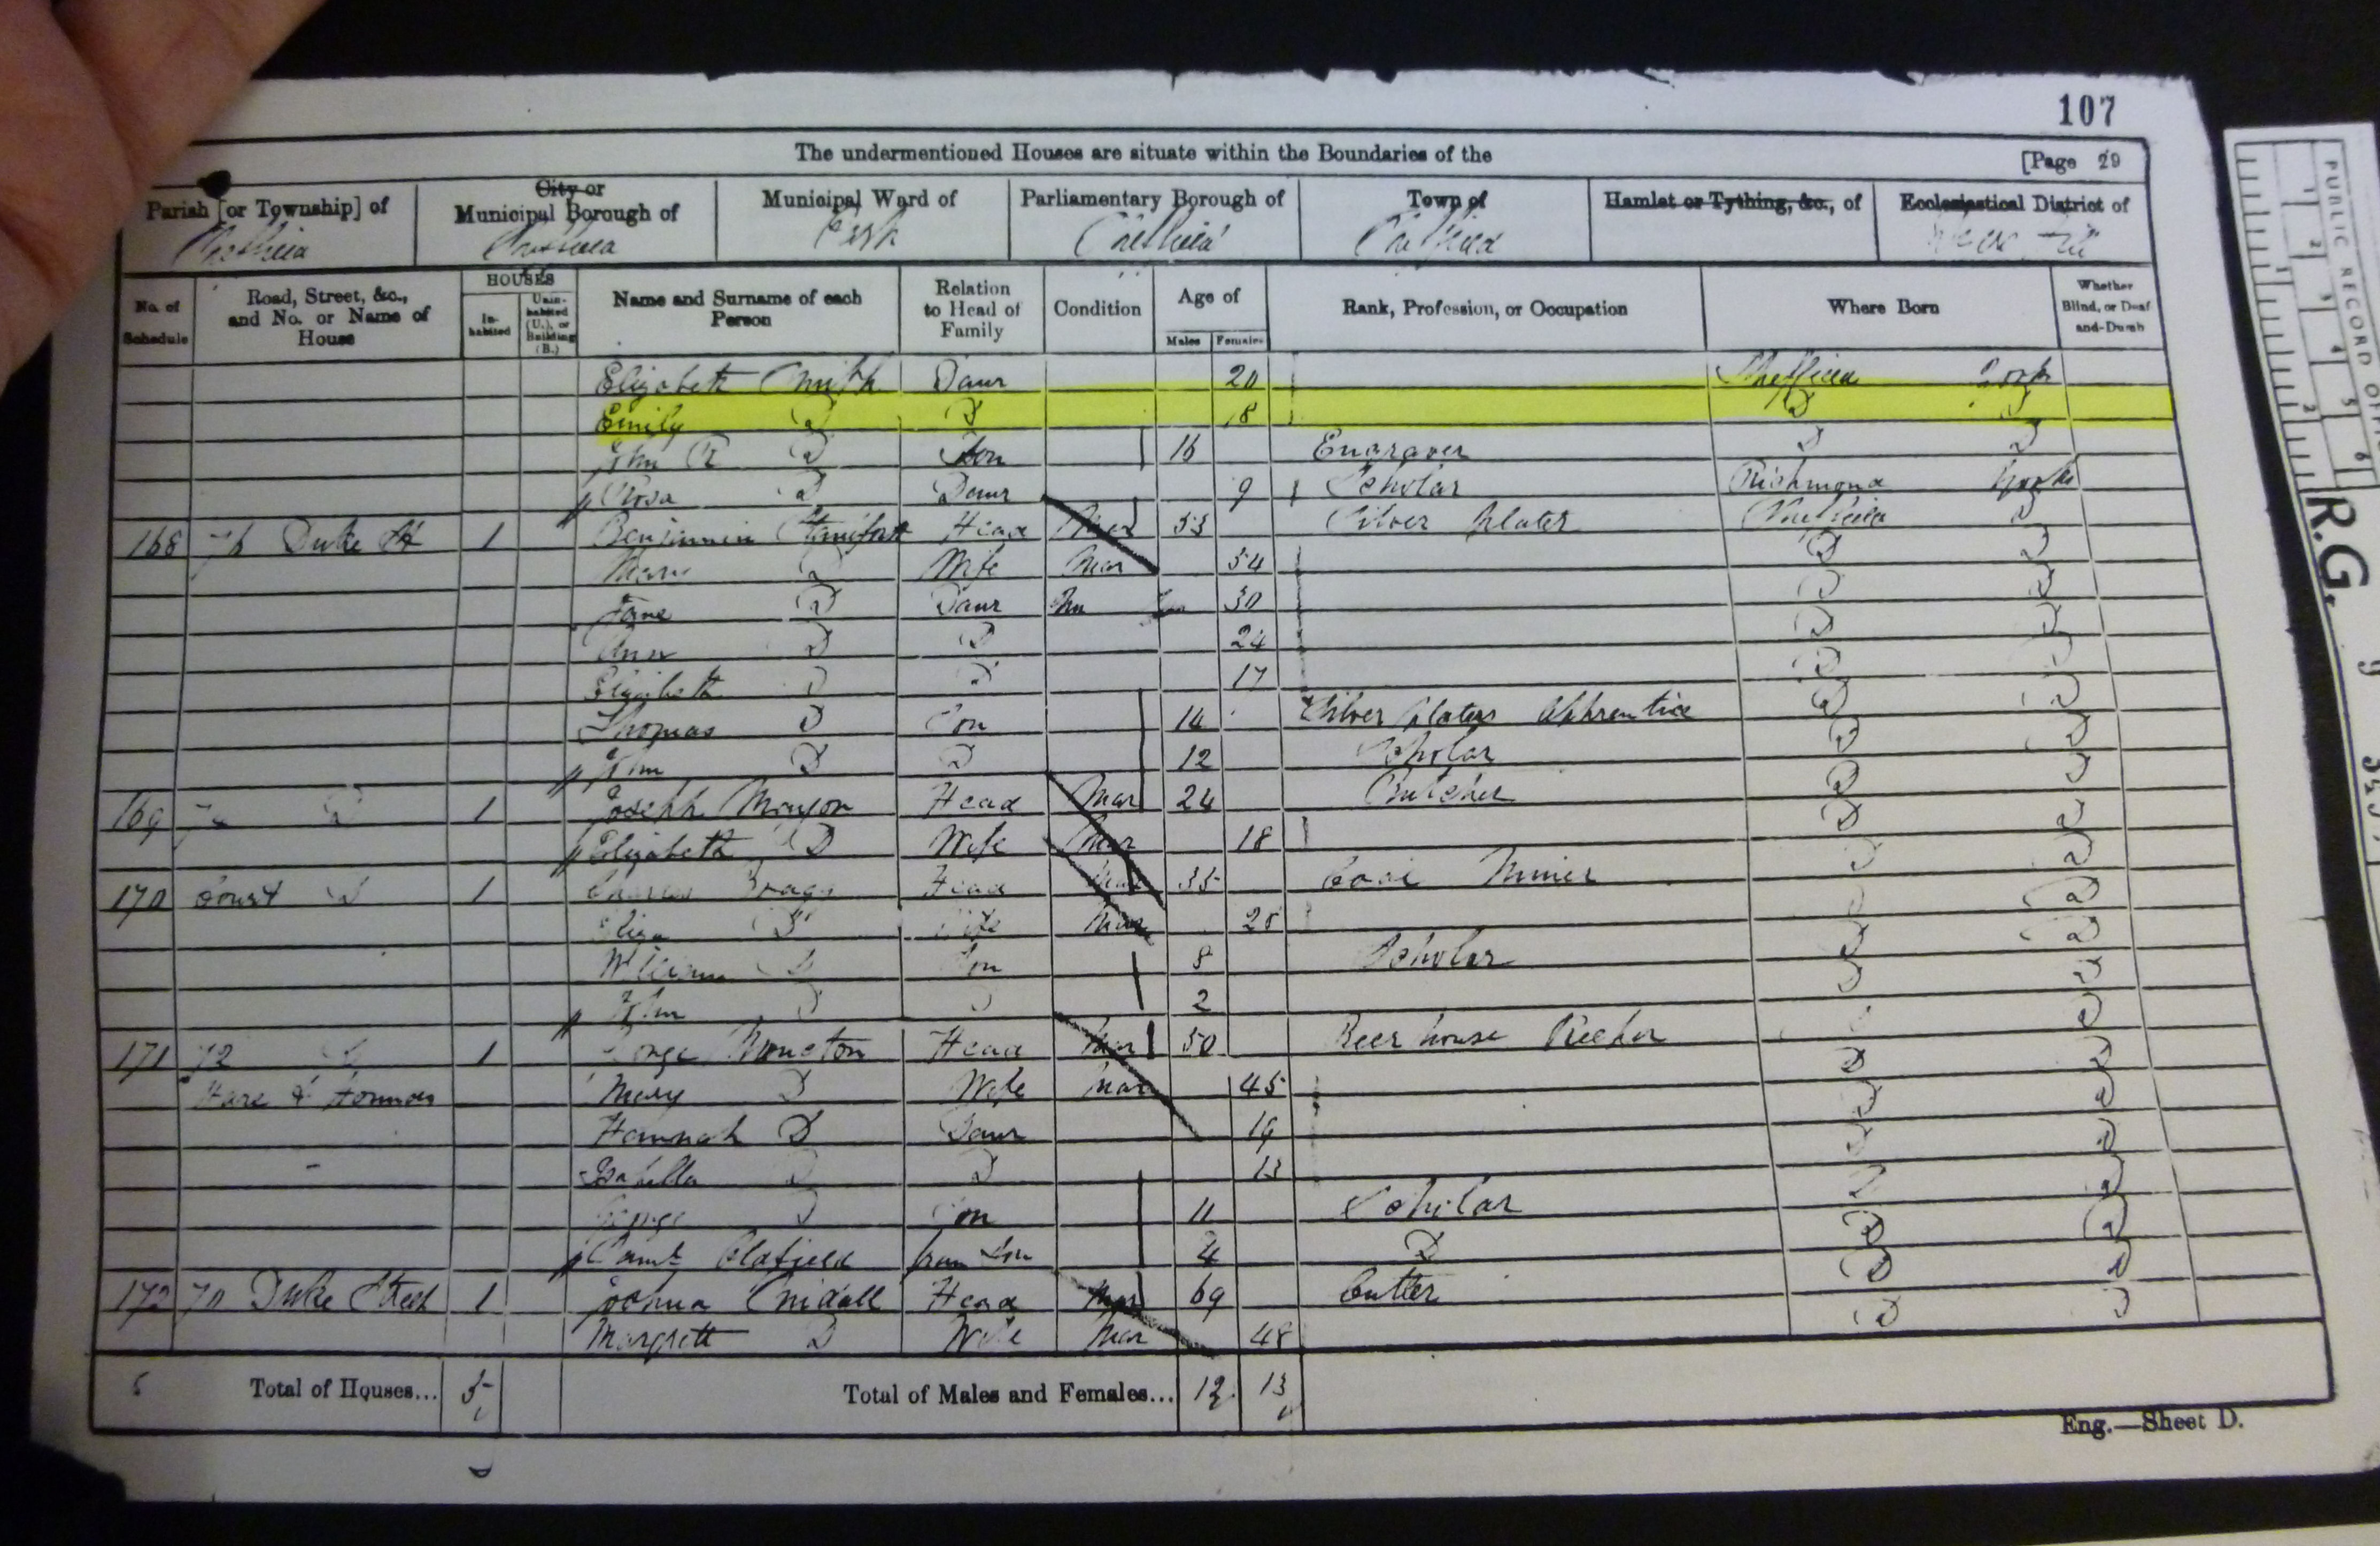 107
The undermentioned Houses are situate within the Boundaries of the
[Page 29
Parish [or Township] of
City or Municipal Borough of
Municipal Ward of
Parliamentary Borough of
Town of
Hamlet or Tything, &c., of
Ecclesiastical District of
Sheffield Sheffield Park Sheffield Sheffield
No. of Schedule
Road, Street, &c., and No. or Name of House
HOUSES
In-habited
Unin-habited (U.), or Building (B.)
Name and Surname of each Person
Relation to Head of Family
Condition
Age of
Males
Females
Rank, Profession, or Occupation
Where Born
Whether Blind, or Deaf-and-Dumb
Elizabeth Smith Daur 20 Sheffield York
Emily D D 18 D D
John D Son 16 Engraver D D
Rosa D Daur 9 Scholar Richmond Yorks
168 76 Duke St 1 Benjamin Head Mar 53 Silver Plater Sheffield D
D Wife Mar 54 D D
Jane D Daur Un 30 D D
Ann D D 24 D D
Elizabeth D D 17 D D
Thomas D Son 14 Silver Platers Apprentice D D
John D D 12 Scholar D D
169 D 1 Joseph Head Mar 24 Butcher D D
Elizabeth D Wife Mar 18 D D
170 Court D 1 Charles Bragg Head Mar 35 Coal Miner D D
Eliza D Wife Mar 28 D D
William D Son 8 Scholar D D
John D D 2 D
171 72 D 1 George Head Mar 50 Beer house Keeper D D
Hare & Hounds Mary D Wife Mar 45 D D
Hannah D Daur 19 D D
Isabella D D 13 D D
George D Son 11 Scholar D D
Oldfield Son 4 D D D
172 70 Duke Street 1 Joshua Head Mar 69 Cutler D D
Margrett D Wife Mar 48
Total of Houses... 5
Total of Males and Females... 12 13
Eng.—Sheet D.
PUBLIC RECORD
R.G. 9